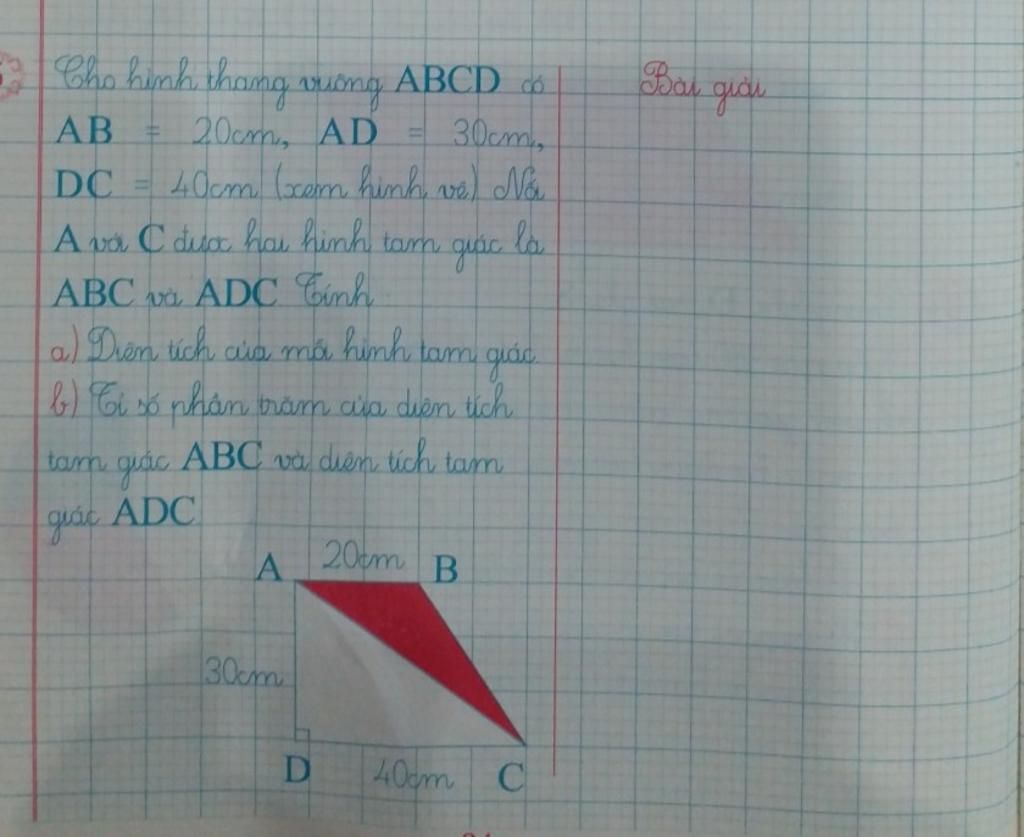 Cho hình thang vuông ABCD có
AB = 20cm, AD = 30cm,
DC = 40cm (xem hình vẽ) Nối
A với C được hai hình tam giác là
ABC và ADC Tính
a) Diện tích của mỗi hình tam giác
b) Tỉ số phần trăm của diện tích
tam giác ABC và diện tích tam
giác ADC
Bài giải
A 20cm B
30cm
D 40cm C